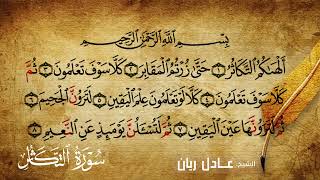 بِسْمِ اللَّهِ الرَّحْمَٰنِ الرَّحِيمِ
أَلْهَاكُمُ التَّكَاثُرُ ١ حَتَّىٰ زُرْتُمُ الْمَقَابِرَ ٢ كَلَّا سَوْفَ تَعْلَمُونَ ٣ ثُمَّ
كَلَّا سَوْفَ تَعْلَمُونَ ٤ كَلَّا لَوْ تَعْلَمُونَ عِلْمَ الْيَقِينِ ٥ لَتَرَوُنَّ الْجَحِيمَ ٦
ثُمَّ لَتَرَوُنَّهَا عَيْنَ الْيَقِينِ ٧ ثُمَّ لَتُسْأَلُنَّ يَوْمَئِذٍ عَنِ النَّعِيمِ ٨
الشيخ عادل ريان
سورة التكاثر